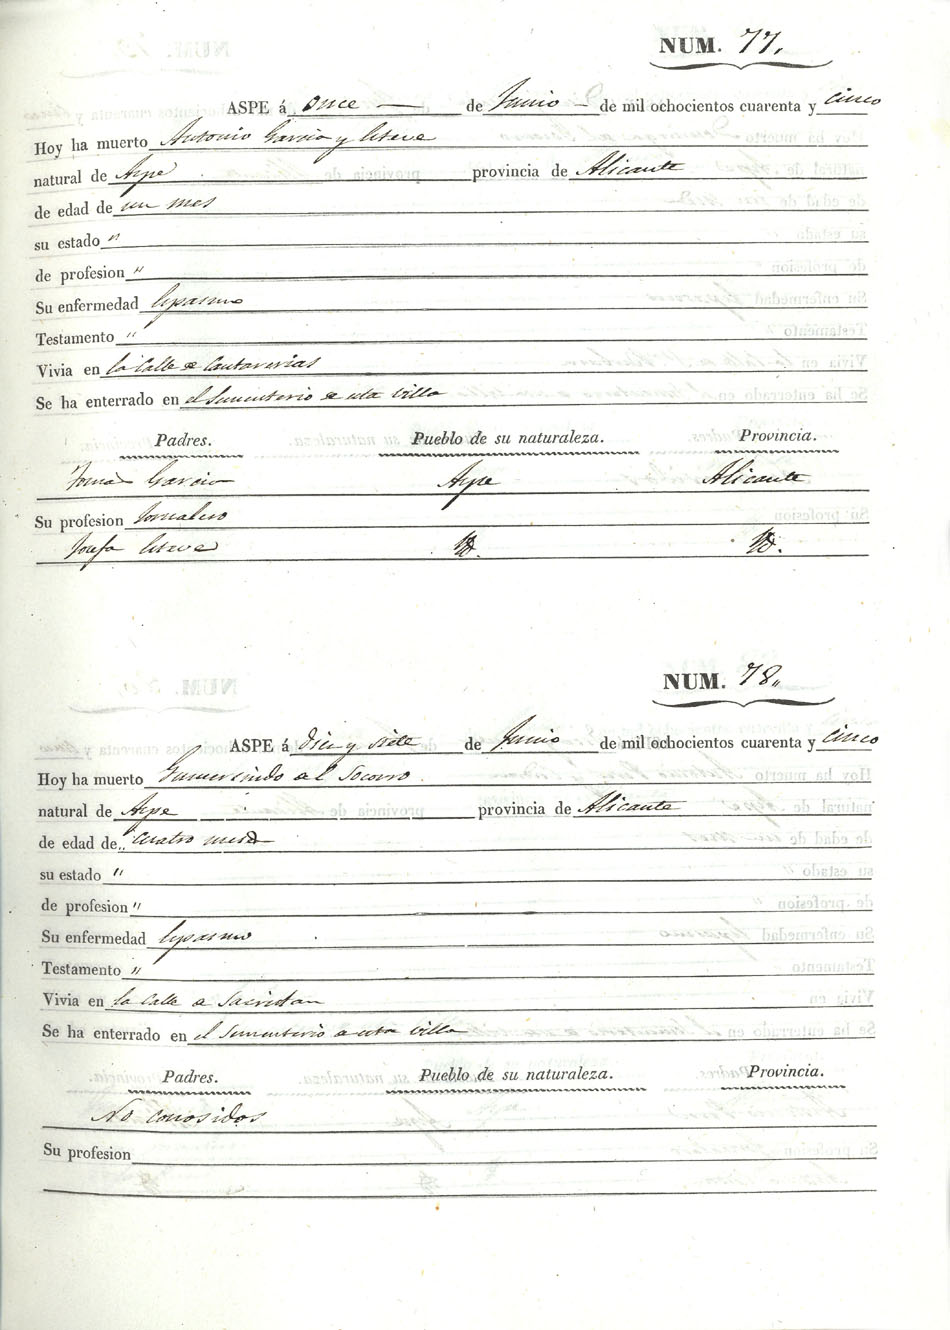 NUM. 77.
ASPE á once de Junio de mil ochocientos cuarenta y cinco
Hoy ha muerto Antonio Garcia y
natural de Aspe provincia de Alicante
de edad de un mes
su estado "
de profesion "
Su enfermedad Espasmo
Testamento "
Vivia en la Calle de
Se ha enterrado en el Sementerio de esta Villa
Padres. Pueblo de su naturaleza. Provincia.
Tomas Garcia Aspe Alicante
Su profesion Jornalero
Josefa Yd. Yd.
NUM. 78.
ASPE á dies y siete de Junio de mil ochocientos cuarenta y cinco
Hoy ha muerto Gumersindo del Socorro
natural de Aspe provincia de Alicante
de edad de cuatro meses
su estado "
de profesion "
Su enfermedad Espasmo
Testamento "
Vivia en la Calle de Sacristan
Se ha enterrado en el Sementerio de esta Villa
Padres. Pueblo de su naturaleza. Provincia.
No conosidos
Su profesion